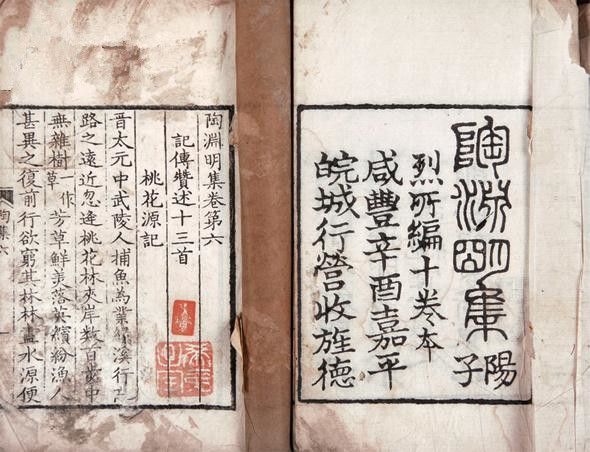 陶淵明集陽子
烈所編十卷本
咸豐辛酉嘉平
皖城行營收旌德
陶淵明集卷第六
記傳贊述十三首
桃花源記
晉太元中武陵人捕魚為業溪行
路之遠近忽逢桃花林夾岸數百步中
無雜樹一作草芳草鮮美落英繽紛漁人
甚異之復前行欲窮其林林盡水源便
陶集六